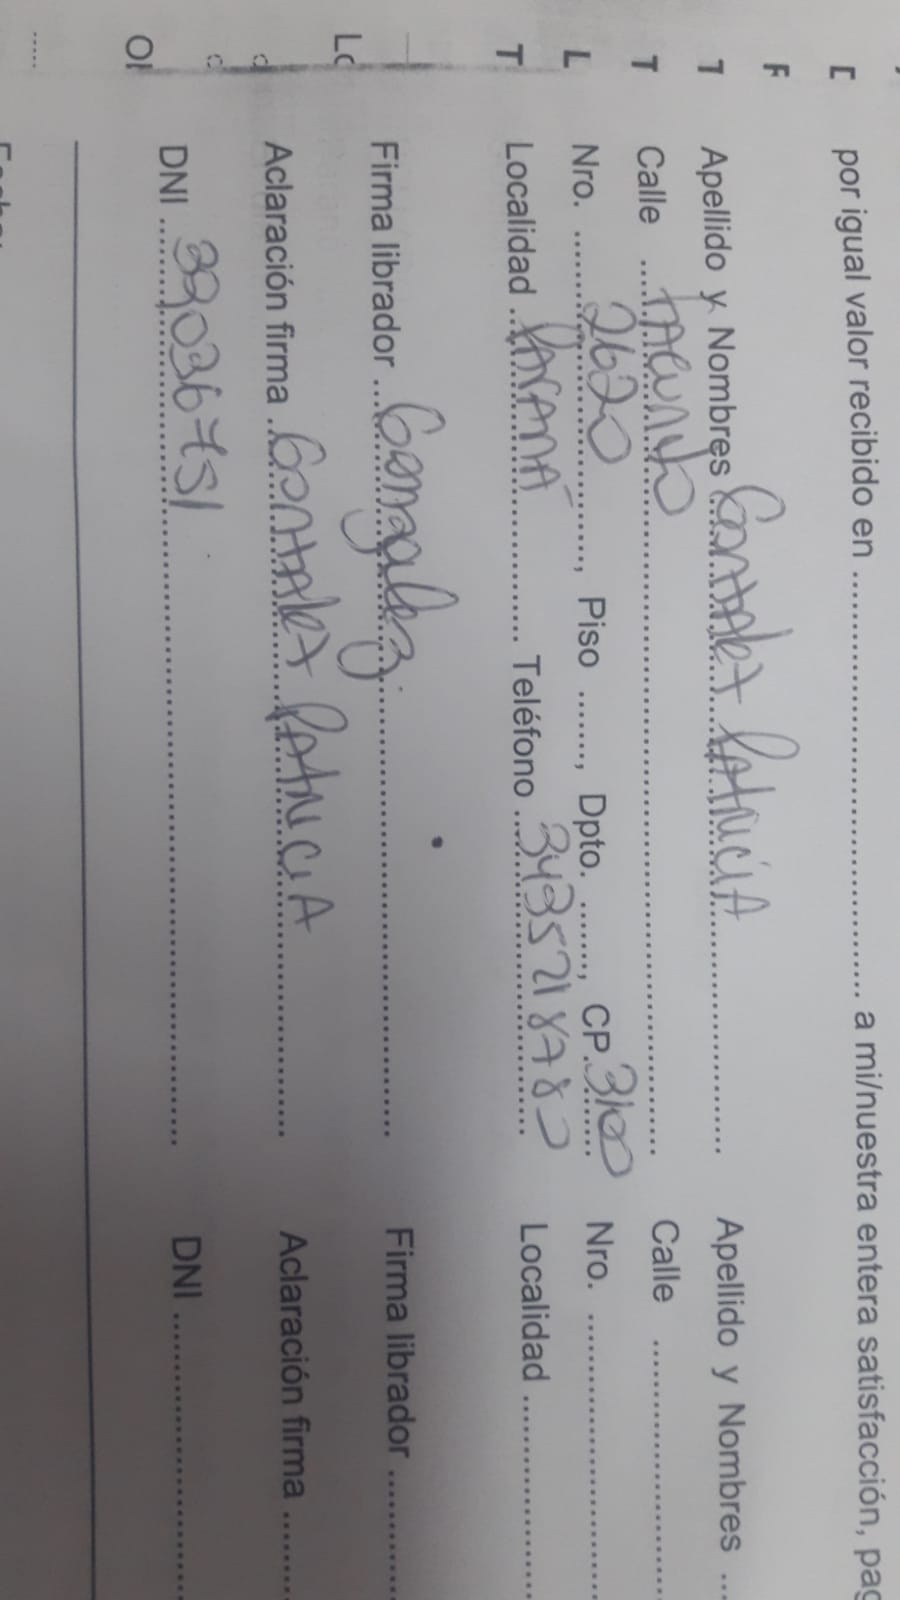 por igual valor recibido en ........................................ a mi/nuestra entera satisfacción, pag
Apellido y Nombres Gonzalez Patricia Apellido y Nombres ...
Calle .... ........................................ Calle ....................
Nro. 2620, Piso ......, Dpto. ......., CP. 3100 Nro. ....................
Localidad Paraná Teléfono 3435218780 Localidad ....................
Firma librador Gonzalez Firma librador ..........
Aclaración firma Gonzalez Patricia Aclaración firma ........
DNI 39036751 DNI ....................